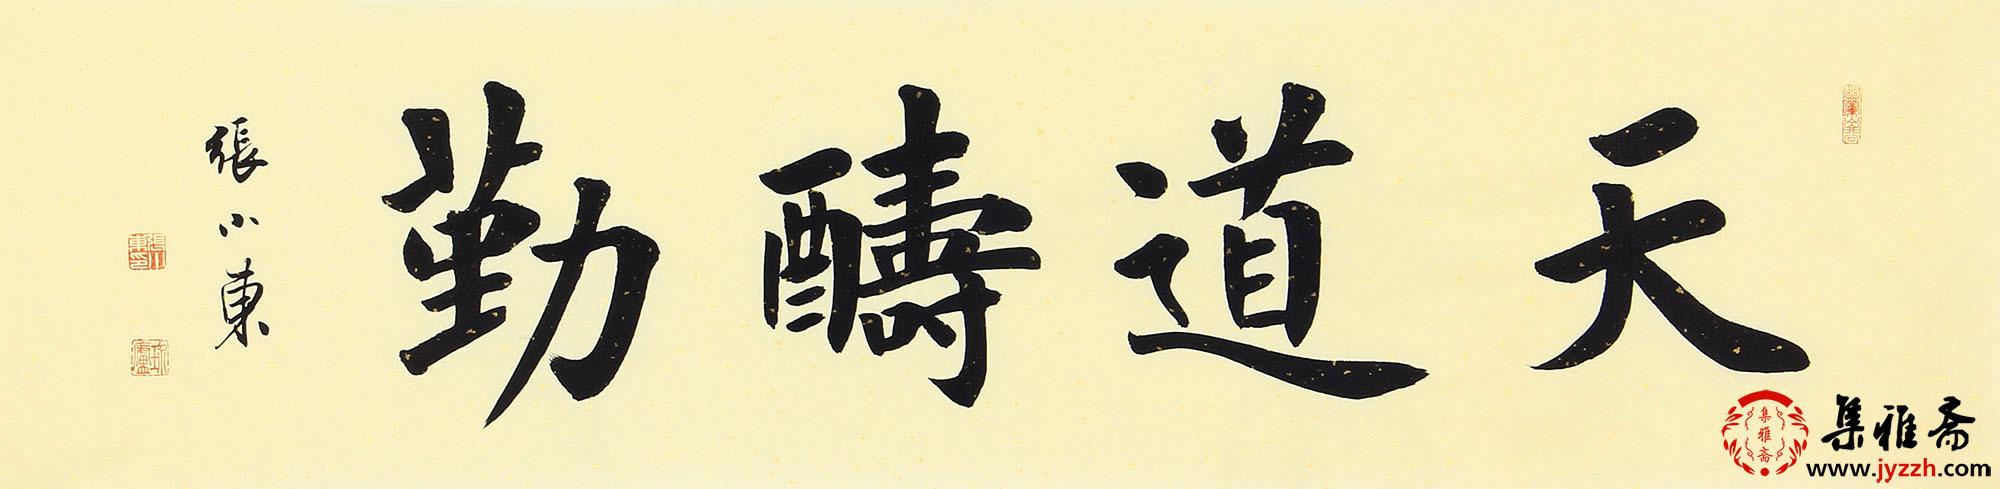 天道醻勤
張小東
集雅斋
集雅斋
www.jyzzh.com